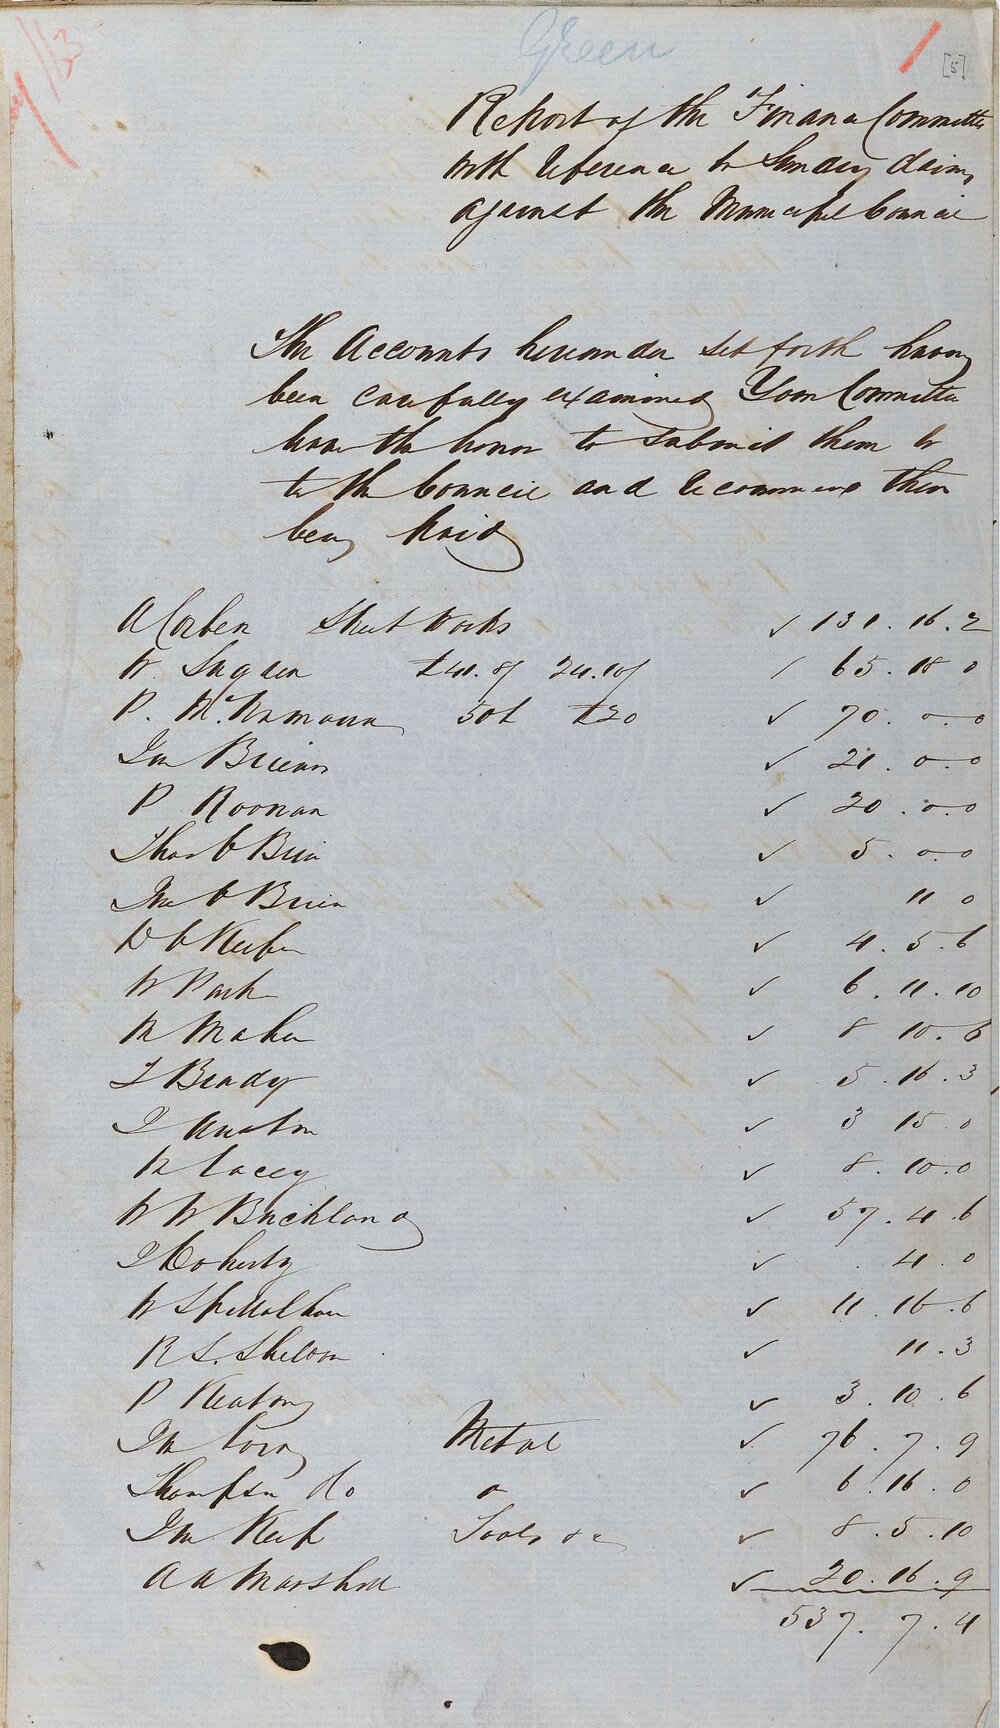 Green
[5]
Report of the Finance Committee
with reference to Sundry claims
against the Municipal Council
The Accounts hereunder set forth having
been carefully examined Your Committee
have the honor to submit them to
to the Council and recommend their
being paid
A Corben Street Works ✓ 131. 16. 2
W. £41. 8/ 24. 10/ / 65. 18 0
P. McNamara 50£ £20 ✓ 70. 0. 0
Jn Briens ✓ 21. 0. 0
P Noonan ✓ 20. 0. 0
Thos O Brien ✓ 5. 0. 0
Jno O Brien ✓ 11 0
D O Keefe ✓ 4. 5. 6
W Park ✓ 6. 11. 10
M Maher ✓ 8 10. 6
T Brady ✓ 5. 16. 3
J ✓ 3 15. 0
M Lacey ✓ 8. 10. 0
W W Buckland ✓ 57. 4. 6
J Doherty ✓ 4. 0
W ✓ 11. 16. 6
R S. Skelton ✓ 11. 3
P Keating ✓ 3. 10. 6
Jn Metal ✓ 76. 7. 9
Thompson ✓ 6. 16. 0
Jn Keep Tools &c ✓ 8. 5. 10
A A Marshall ✓ 20. 16. 9
537. 7. 4